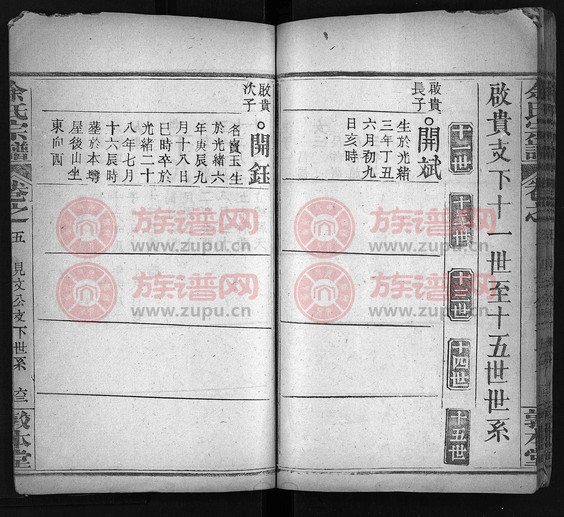 啟貴支下十一世至十五世世系
十一世
十二世
十三世
十四世
十五世
啟貴
長子
開斌
生於光緒
三年丁丑
六月初九
日亥時
啟貴
次子
開鈺
名寶玉生
於光緒六
年庚辰九
月十八日
巳時卒於
光緒二十
八年七月
十六辰時
墓於本塆
屋後山坐
東向酉
余氏宗譜
卷之
五
見文公支下世系
敦本堂
余氏宗譜
敦本堂
族谱网
www.zupu.cn
族谱网
www.zupu.cn
族谱网
www.zupu.cn
族谱网
www.zupu.cn